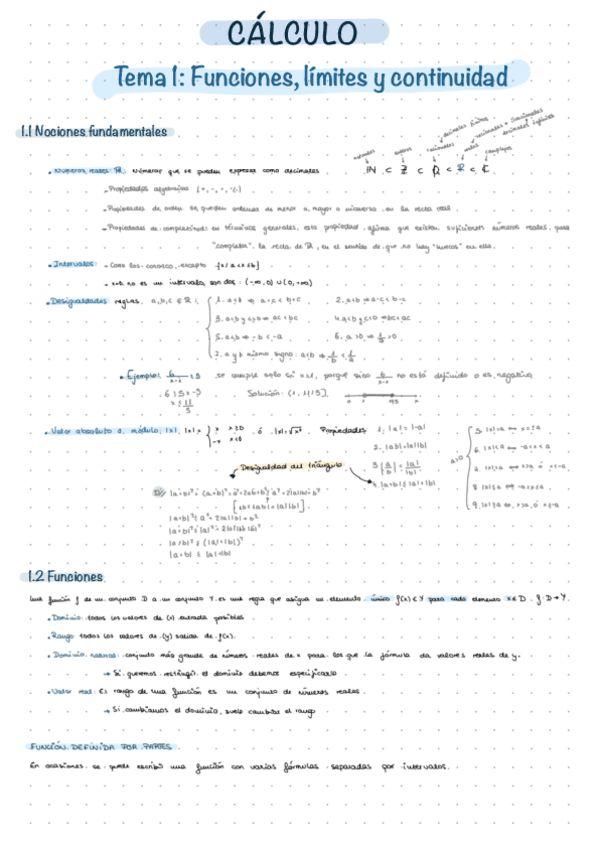 CÁLCULO
Tema 1: Funciones, límites y continuidad
1.1 Nociones fundamentales
decimales finitos
naturales enteros racionales reales complejos
ℕ ⊂ ℤ ⊂ ℚ ⊂ ℝ ⊂ ℂ
• Números reales ℝ: Números que se pueden expresar como decimales
→ Propiedades algebraicas (+, -, ·, ÷)
→ Propiedades de orden: se pueden ordenar de menor a mayor o viceversa en la recta real.
→ Propiedades de completitud: en términos generales, esta propiedad afirma que existen suficientes números reales para
"completar" la recta de ℝ, en el sentido de que no hay "huecos" en ella.
• Intervalos: → Como los conozco, excepto {x/ a<x≤b}
→ x≠0 no es un intervalo, son dos: (-∞, 0) ∪ (0, +∞)
• Desigualdades reglas. a, b, c ∈ ℝ:
1. a<b ⇒ a+c < b+c
2. a<b ⇒ a-c < b-c
3. a<b y c>0 ⇒ ac < bc
4. a<b y c<0 ⇒ bc < ac
5. a<b ⇒ -b < -a
6. a>0 ⇒ 1/a > 0
7. a y b mismo signo: a<b ⇒ 1/b < 1/a
• Ejemplo: 6/x-1 ≥ 5 se cumple solo si x>1, porque sino 6/x-1 no está definido o es negativo
6 ≥ 5x-5
x ≤ 11/5
Solución: (1, 11/5].
• Valor absoluto o módulo, |x|. |x| = { x x≥0 -x x<0 ó |x| = √x²
Propiedades
1. |a| = |-a|
2. |ab| = |a||b|
3. |a/b| = |a|/|b|
4. |a+b| ≤ |a|+|b|
a>0
Desigualdad del triángulo
|a+b|² = (a+b)² = a²+2ab+b² ≤ a²+2|a||b|+b²
|a+b|² ≤ (|a|+|b|)²
|a+b| ≤ |a|+|b|
1.2 Funciones
Una función f de un conjunto D a un conjunto Y es una regla que asigna un elemento único f(x) ∈ Y para cada elemento x ∈ D. f: D → Y.
• Dominio: todos los valores de (x) entrada posibles
• Rango: todos los valores de (y) salida de f(x).
• Dominio natural: conjunto más grande de números reales de x para los que la fórmula da valores reales de y.
→ Si queremos restringir el dominio debemos especificarlo
• Valor real: Es rango de una función es un conjunto de números reales.
→ Si cambiamos el dominio, suele cambiar el rango
FUNCIÓN DEFINIDA POR PARTES.
En ocasiones se puede escribir una función con varias fórmulas separadas por intervalos.